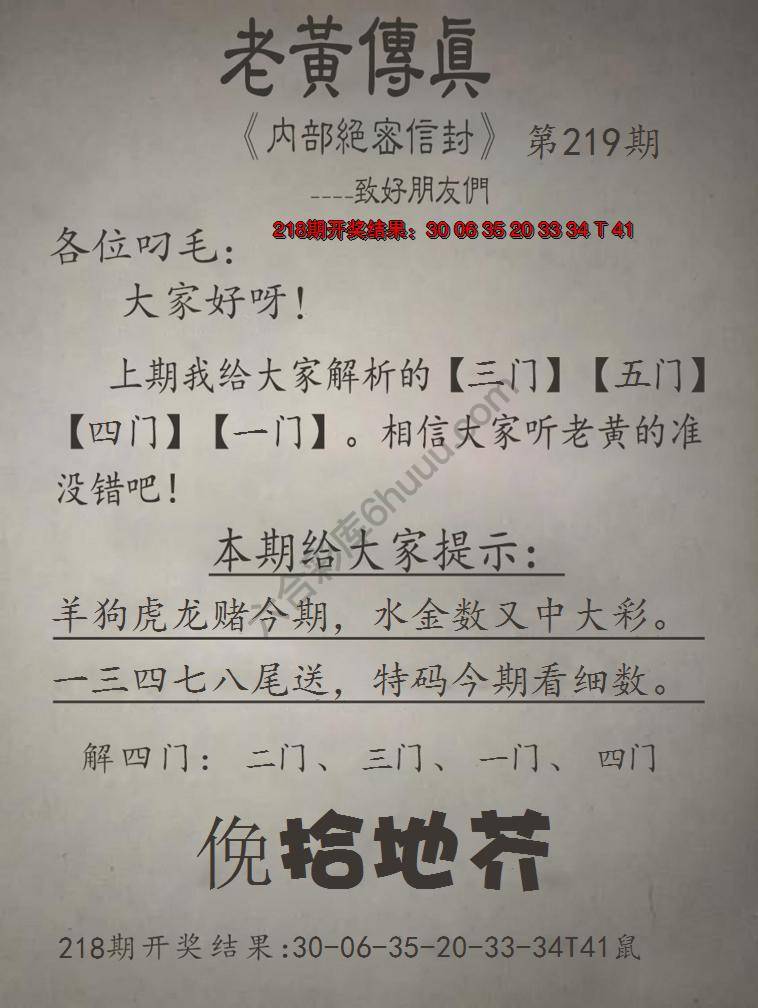 老黃傳眞
《内部絕密信封》 第219期
----致好朋友們
218期开奖结果：30 06 35 20 33 34 T 41
各位叼毛：
大家好呀！
上期我给大家解析的【三门】【五门】
【四门】【一门】。相信大家听老黄的准
没错吧！
本期给大家提示：
羊狗虎龙赌今期，水金数又中大彩。
一三四七八尾送，特码今期看细数。
解四门： 二门、 三门、 一门、 四门
俛拾地芥
218期开奖结果:30-06-35-20-33-34T41鼠
六合彩库6huuu.com